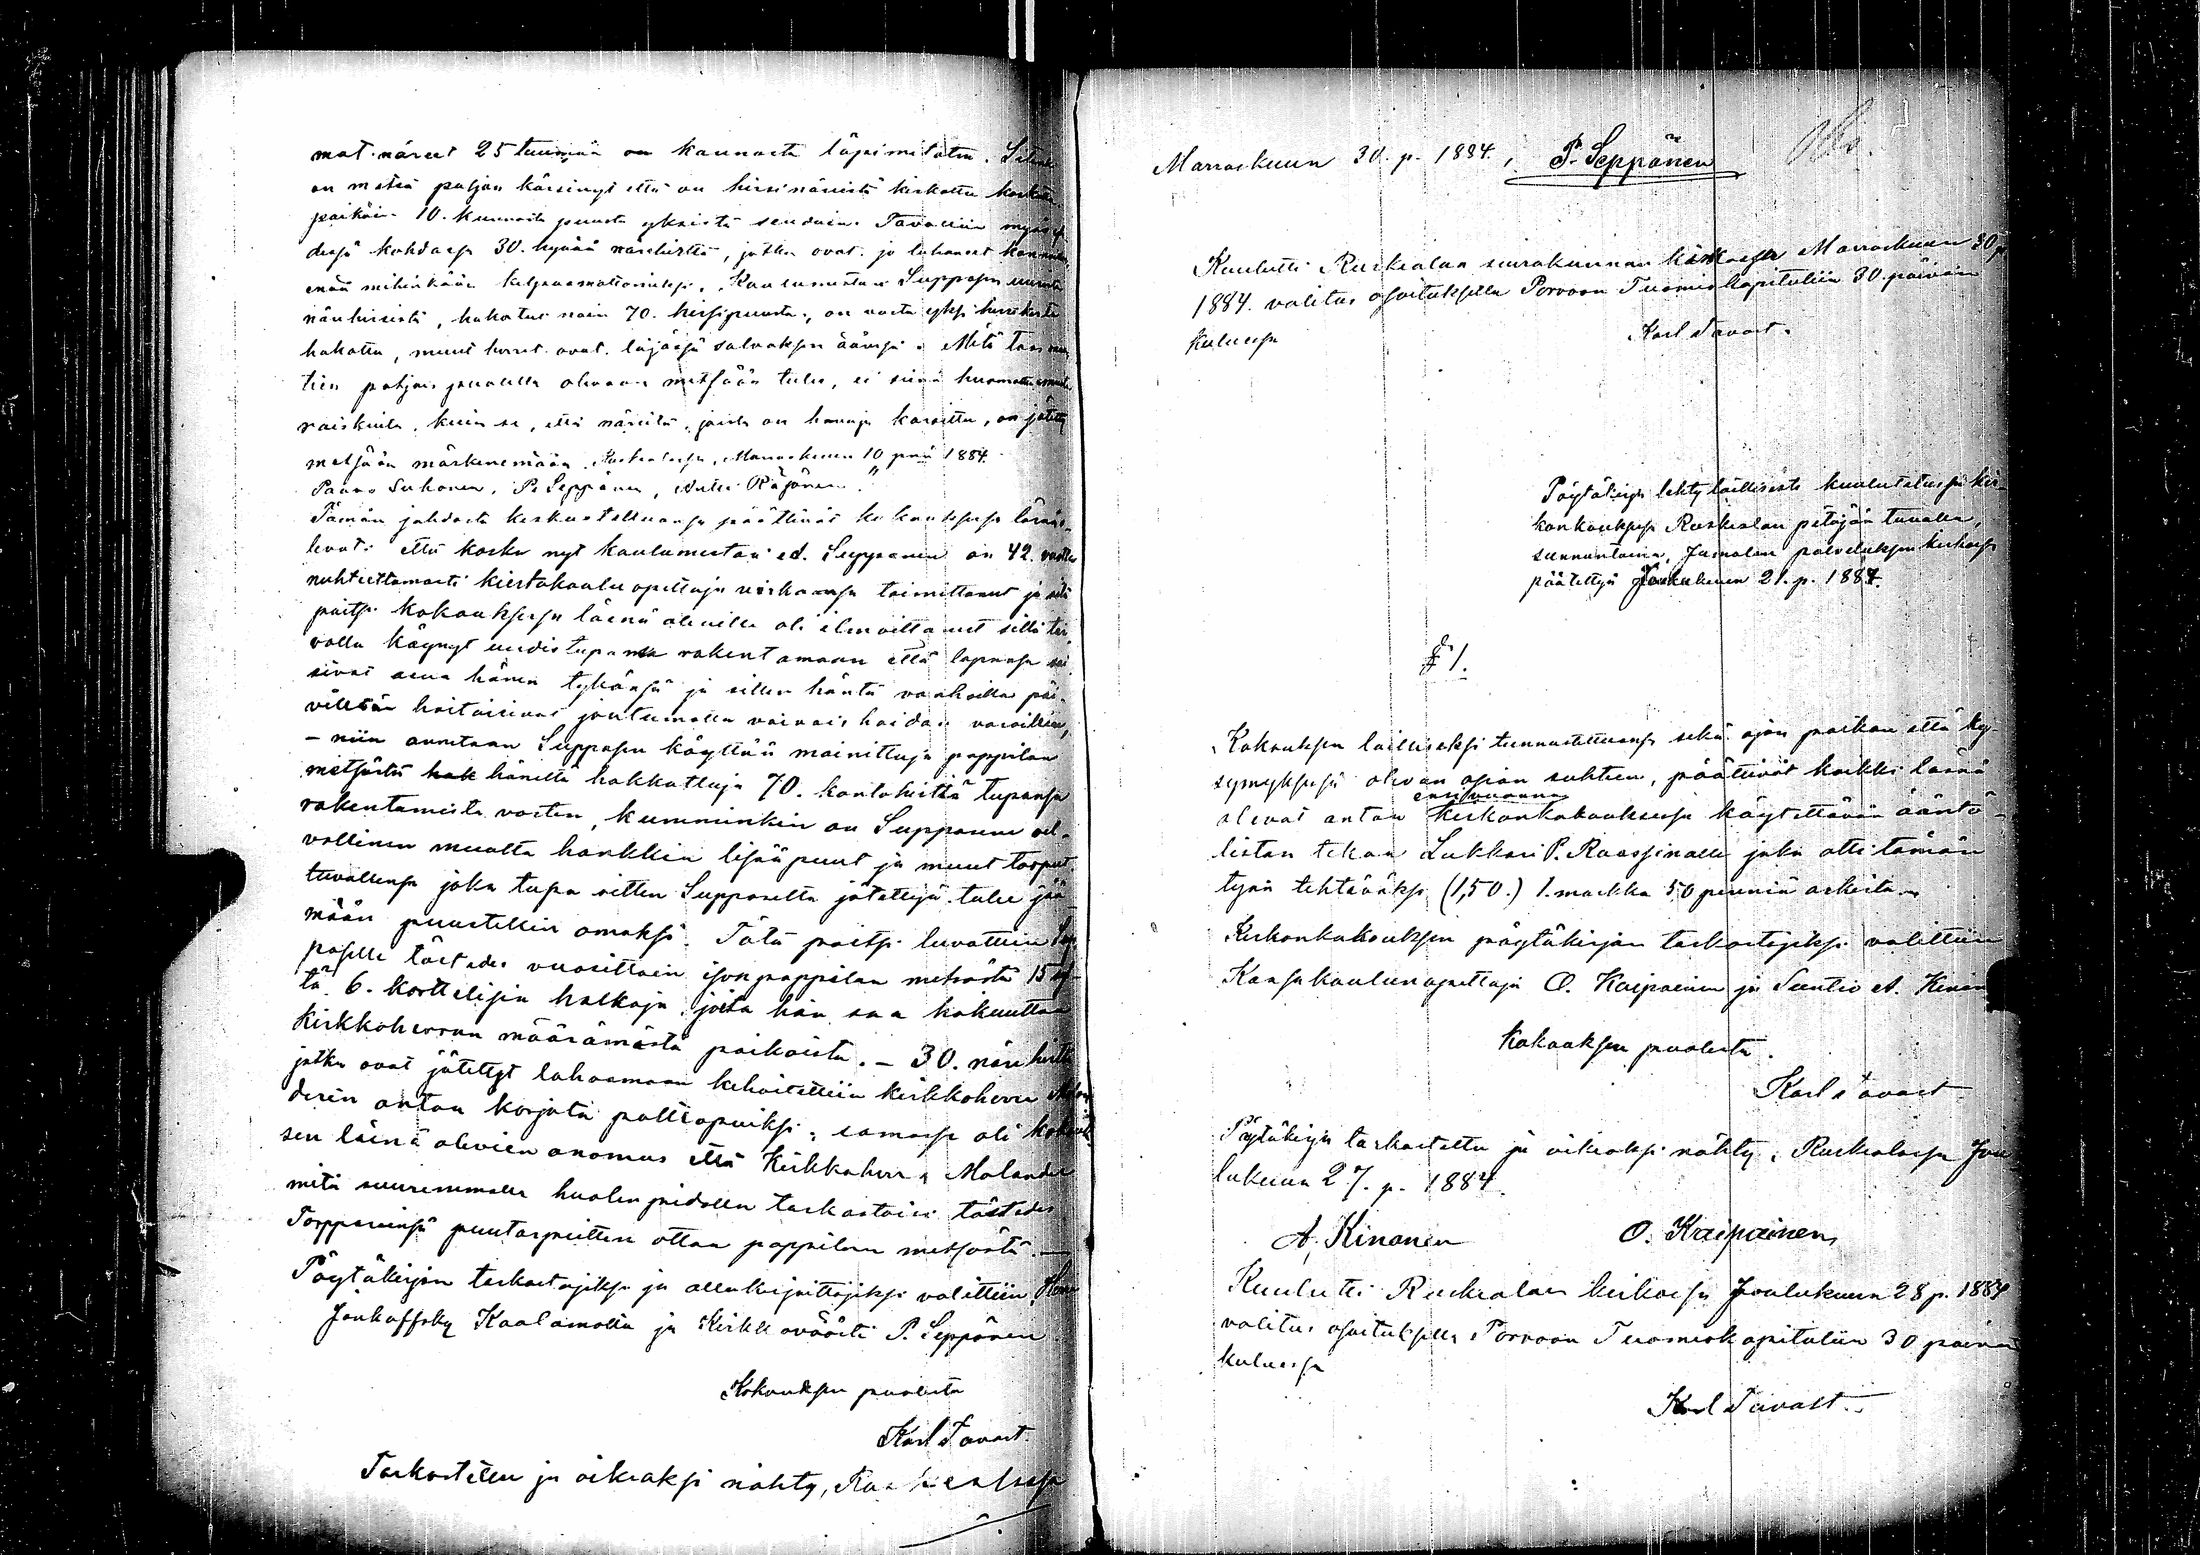 mat näreet 25 tuumaa on kannosta läpimitaten.
on metsä paljon kärsinyt että on hirsinäreistä kiskottu
paikoin 10. kunnosta puusta yksistä sendäin. Tavattiin myös
dessä kohdassa 30. hyvää närehirttä, jotka ovat jo lahonneet
enää mihinkään kelpaamattomiksi. Kaulumestari Suppasen
närehirsistä, hakatut noin 70. hirsipuusta, on vasta yksi hirsikerta
hakattu, muut hirret ovat läjässä salvoksen ääressä. Mitä taas
tien pohjois puolella olevaan metsään tulee, ei siinä huomattu muuta
raiskuuta, kuin se, että näreitä, joista on havuja karsittu, on jätetty
metsään märkänemään. Ruskealassa, Marraskuun 10 pnä 1884.
Paavo Suhonen, P. Seppänen, Antti Räjönen."
Tämän johdosta keskusteltuansa päättivät kokouksessa läsnä-
levat: että koska nyt koulumestari ed. Suppanen on 42. vuotta
nuhteettomasti kiertokoulu opettaja virkaansa toimittanut ja sitä
paitsi kokouksessa läsnä oleville oli ilmoittanut sillä tar-
valla käynyt uudistupansa rakentamaan että lapsensa
sivat asua hänen tykönänsä ja sitten häntä vanhoilla päi-
villään hoitaisivat joutumatta vaivaishoidon varoihin,
– niin annetaan Suppasen käyttää mainittuja pappilan
metsästä hak häneltä hakkattuja 70. kantohirttä tupansa
rakentamista varten, kumminkin on Suppanen vel-
vollinen muualta hankkia lisää puut ja muut tarpeet
tuvallensa joka tupa sitten Suppaselta jätettyä tulee jää-
mään puustellin omaksi. Tätä paitsi luvattiin Sup-
paselle tästedes vuosittain ison pappilan metsästä 15 syl-
tä 6. korttelisia halkoja, joita hän saa hakuuttaa
kirkkoherran määrämästä paikoista. – 30. närehirttä
jotka ovat jätetyt lahoamaan kehoitettiin kirkkoherra Molan-
derin antaa korjata polttopuiksi; samassa oli kokouk-
sen läsnä olevien anomus että Kirkkoherra Molander
mitä suuremmalla huolenpidolla tarkastaisi tästedes
Torppariensa puutarpeitten ottaa pappilan metsästä. —
Pöytäkirjan tarkastajiksi ja allekirjoittajiksi valittiin
Joukoffsky Kaalamolta ja Kirkkoväärti P. Seppänen
Kokouksen puolesta
Karl Tavast.
Tarkastettu ja oikeaksi nähty, Ruskealassa
Marraskuun 30. p. 1884. P. Seppänen
Kuulutti Ruskealan seurakunnan kirkossa Marraskuun 30 p
1884. valitus osoituksella Porvoon Tuomiokapituliin 30. päivän
kuluessa
Karl Tavast.
Pöytäkirja tehty laillisesti kuulutetussa kir-
konkouksessa Ruskealan pitäjän tuvalla,
sunnuntaina, Jumalan palveluksen kirkossa
päätettyä Joulukuun 21. p. 1884.
§ 1.
Kokouksen lailliseksi tunnustettuansa sekä ajan paikan että ky-
symyksessä olevan asian suhteen, päättivät kaikki läsnä
ensi vuonna
olevat antaa kirkonkokouksessa käytettävän ääntö-
listan tekoa Lukkari P. Raassinalle joka otti tämän
työn tehtävääksi (1,50.) 1. markka 50 penniä arkista.
Kirkonkokouksen pöytäkirjan tarkastajiksi valittiin
Kansakoulunopettaja O. Kaipainen ja Suntio A. Kinanen
Kokouksen puolesta.
Karl Tavast
Pöytäkirja tarkastettu ja oikeaksi nähty, Ruskealassa Jou-
lukuun 27. p. 1884.
A. Kinanen O. Kaipainen
Kuulutti Ruskealan kirkossa Joulukuun 28 p. 1884
valitus osoituksella Porvoon Tuomiokapituliin 30 päivän
kuluessa
Karl Tavast.